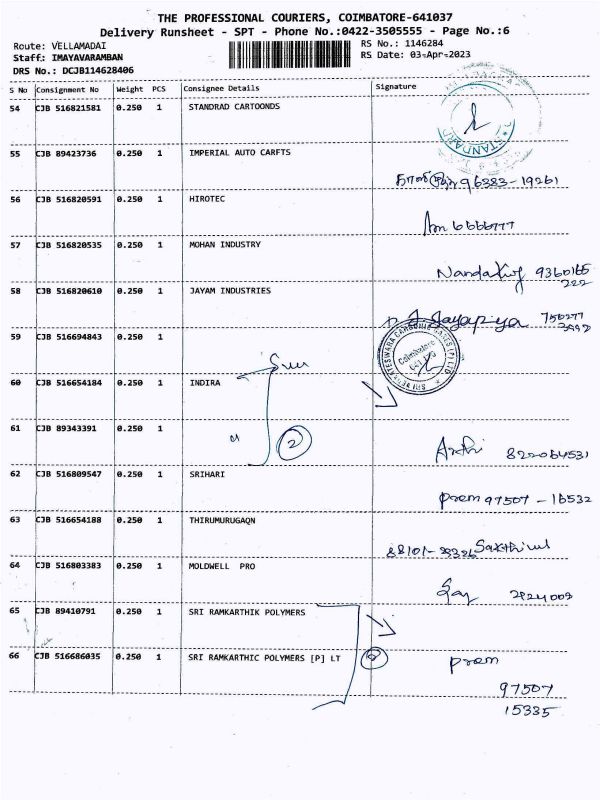 THE PROFESSIONAL COURIERS, COIMBATORE-641037
Delivery Runsheet - SPT - Phone No.:0422-3505555 - Page No.:6
Route: VELLAMADAI
RS No.: 1146284
Staff: IMAYAVARAMBAN
RS Date: 03-Apr-2023
DRS No.: DCJB114628406
S No Consignment No Weight PCS Consignee Details Signature
54 CJB 516821581 0.250 1 STANDRAD CARTOONDS
55 CJB 89423736 0.250 1 IMPERIAL AUTO CARFTS
96383-19261
56 CJB 516820591 0.250 1 HIROTEC
57 CJB 516820535 0.250 1 MOHAN INDUSTRY
9360165
222
58 CJB 516820610 0.250 1 JAYAM INDUSTRIES
59 CJB 516694843 0.250 1
Coimbatore
60 CJB 516654184 0.250 1 INDIRA
61 CJB 89343391 0.250 1
2
62 CJB 516809547 0.250 1 SRIHARI
prem 97507 - 16532
63 CJB 516654188 0.250 1 THIRUMURUGAQN
64 CJB 516803383 0.250 1 MOLDWELL PRO
65 CJB 89410791 0.250 1 SRI RAMKARTHIK POLYMERS
66 CJB 516686035 0.250 1 SRI RAMKARTHIC POLYMERS [P] LT
prem
97507
15335